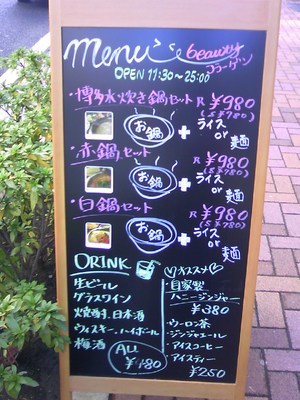 menu
beauty
コラーゲン
OPEN 11:30〜25:00
・博多水炊き鍋セット R ¥980
(S ¥780)
お鍋 + ライス or 麺
・赤鍋セット R ¥980
(S ¥780)
お鍋 + ライス or 麺
・白鍋セット R ¥980
(S ¥780)
お鍋 + ライス or 麺
DRINK
生ビール
グラスワイン
焼酎、日本酒
ウィスキー、ハイボール
梅酒
ALL ¥480
♡オススメ♡
・自家製
ハニージンジャー
¥380
・ウーロン茶
・ジンジャエール
・アイスコーヒー
・アイスティー
¥250